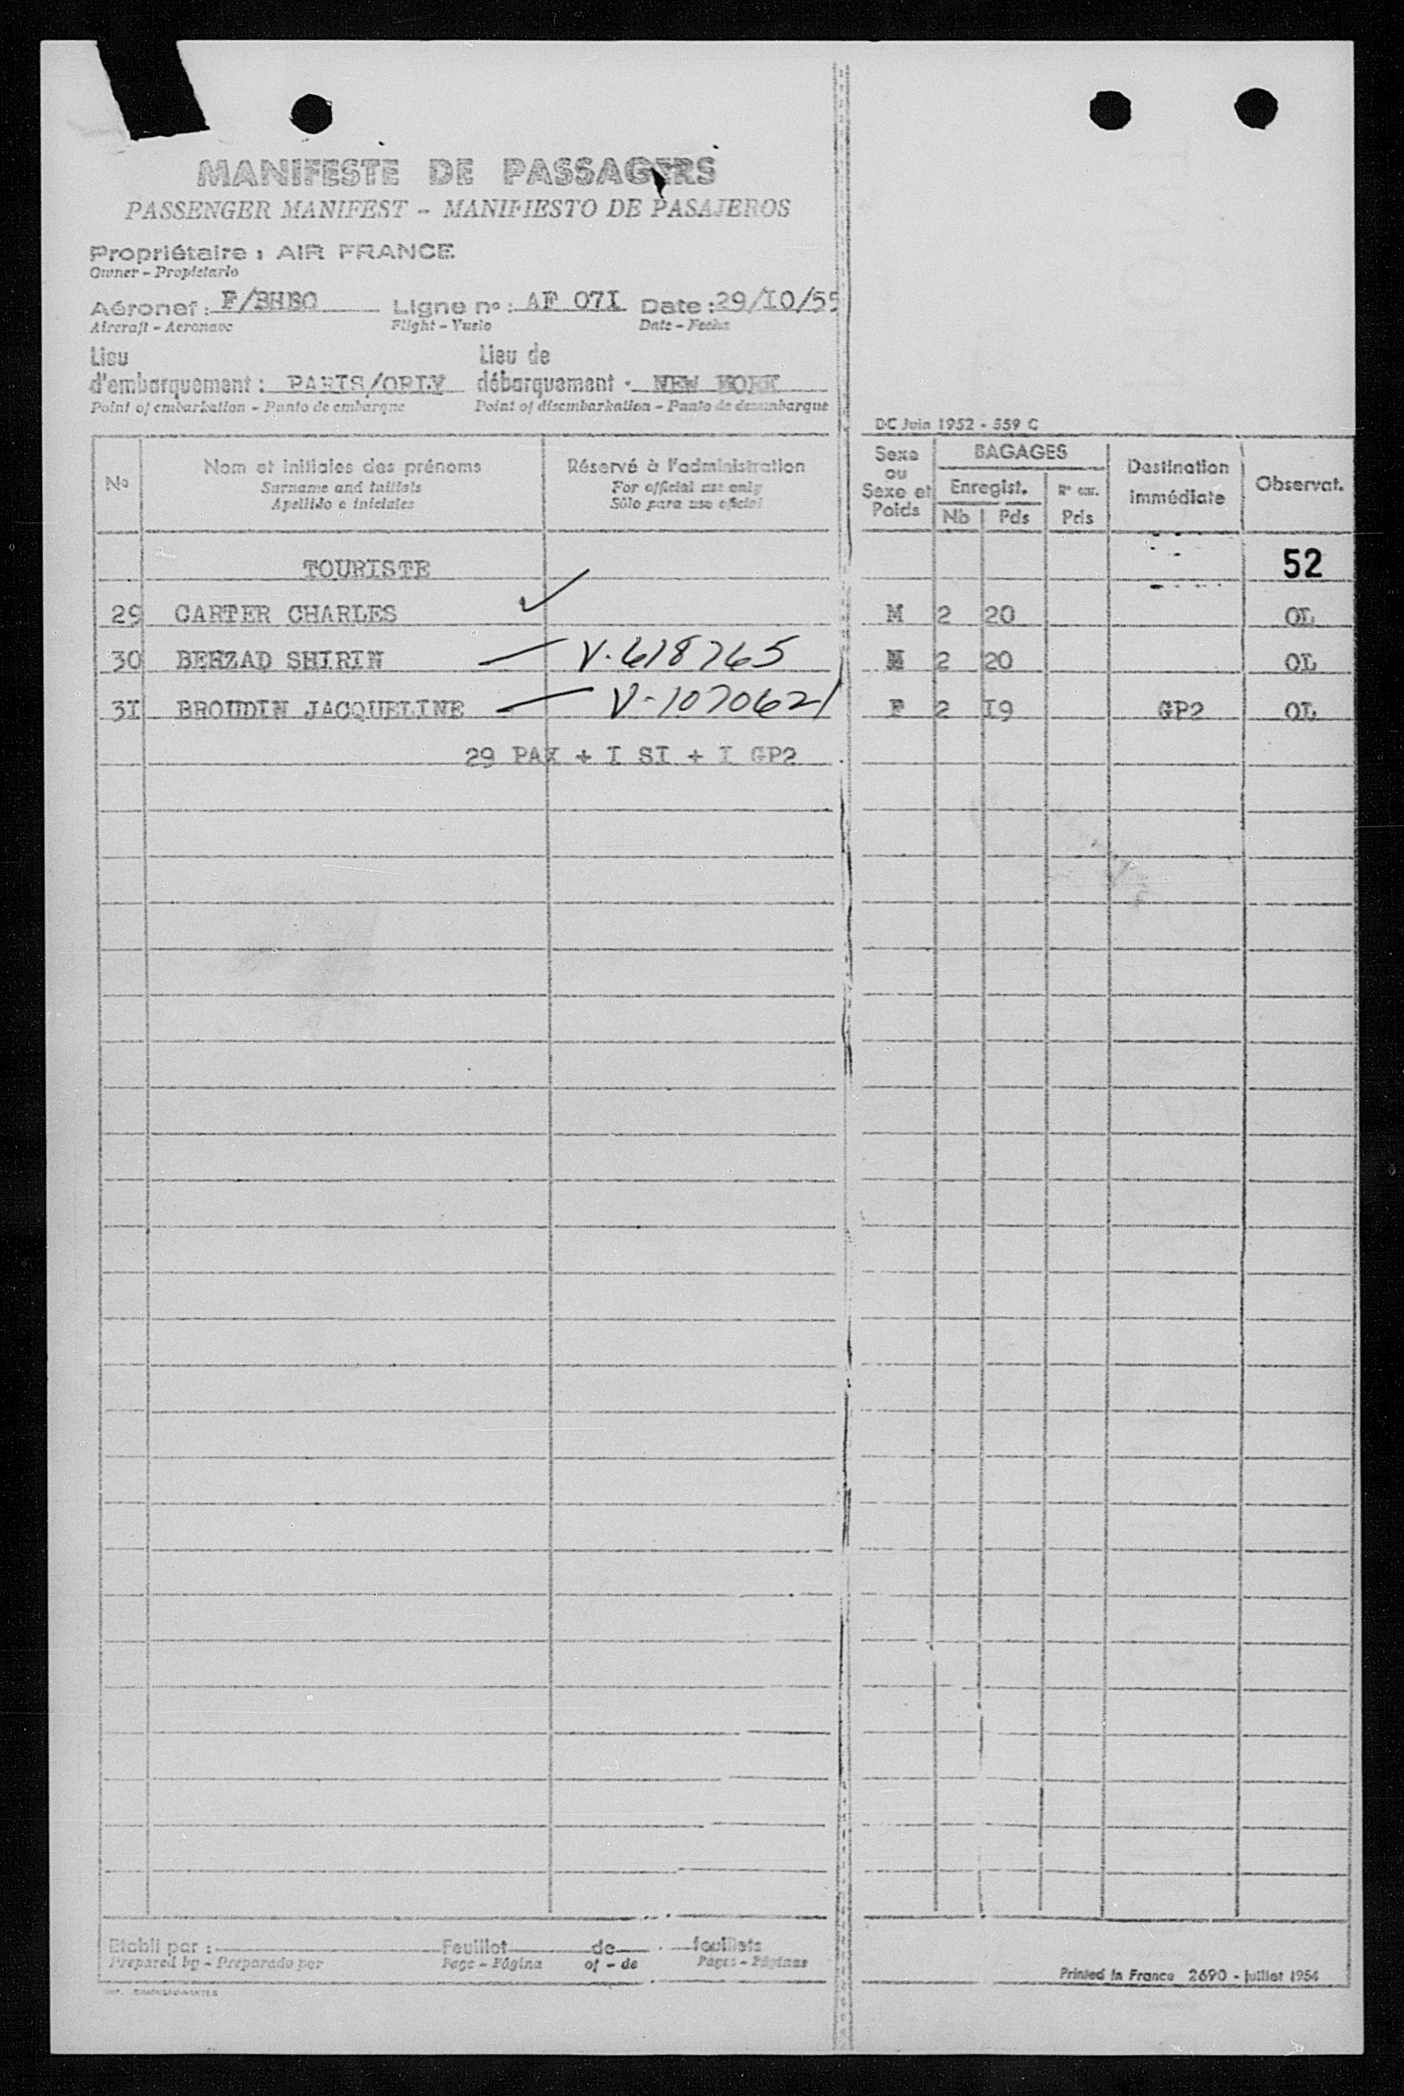 MANIFESTE DE PASSAGERS
PASSENGER MANIFEST - MANIFIESTO DE PASAJEROS
Propriétaire : AIR FRANCE
Owner - Propietario
Aéronef : F/BHBO Ligne no : AF 07I Date : 29/I0/55
Aircraft - Aeronave Flight - Vuelo Date - Fecha
Lieu d'embarquement : PARIS/ORLY Lieu de débarquement : NEW YORK
Point of embarkation - Punto de embarque Point of disembarkation - Punto de desembarque
DC Juin 1952 - 559 C
No Nom et initiales des prénoms Réservé à l'administration Sexe ou Sexe et Poids BAGAGES Destination immédiate Observat.
Surname and initials For official use only Enregist.
Apellido e iniciales Sólo para uso oficial Nb Pds Pds
TOURISTE 52
29 CARTER CHARLES ✓ M 2 20 OL
30 BEHZAD SHIRIN — V-618765 M 2 20 OL
3I BROUDIN JACQUELINE — V-1070621 F 2 I9 GP2 OL
29 PAX + I SI + I GP2
Etabli par : Feuillet de feuillets
Prepared by - Preparado por Page - Página of - de Pages - Páginas
Printed in France 2690 - juillet 1954